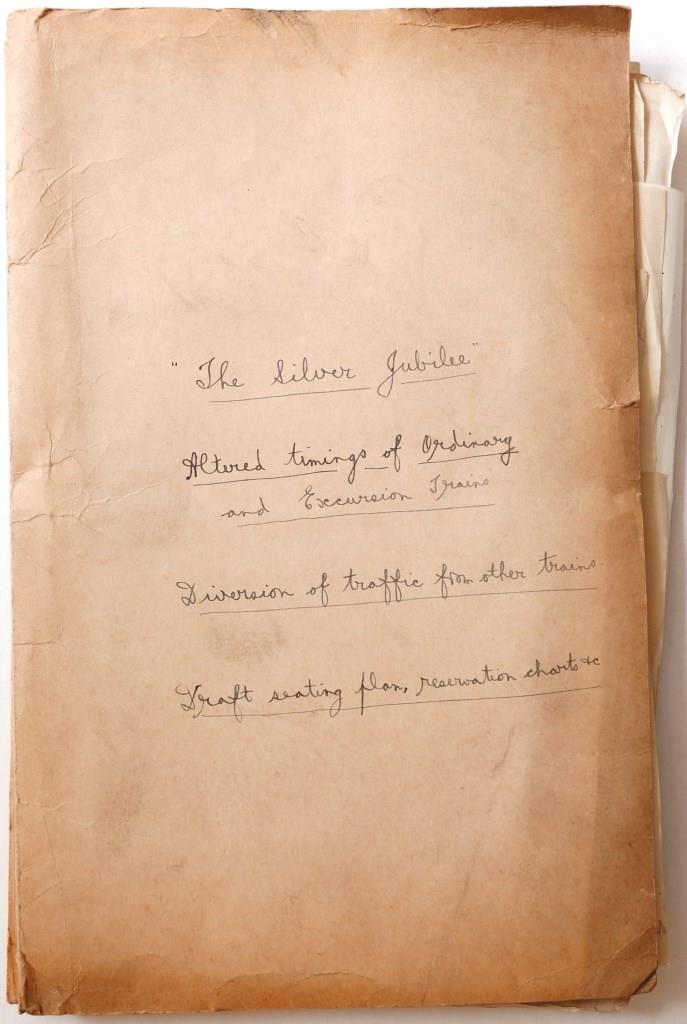 "The Silver Jubilee"
Altered timings of Ordinary
and Excursion Trains
Diversion of traffic from other trains.
Draft seating plan, reservation charts &c